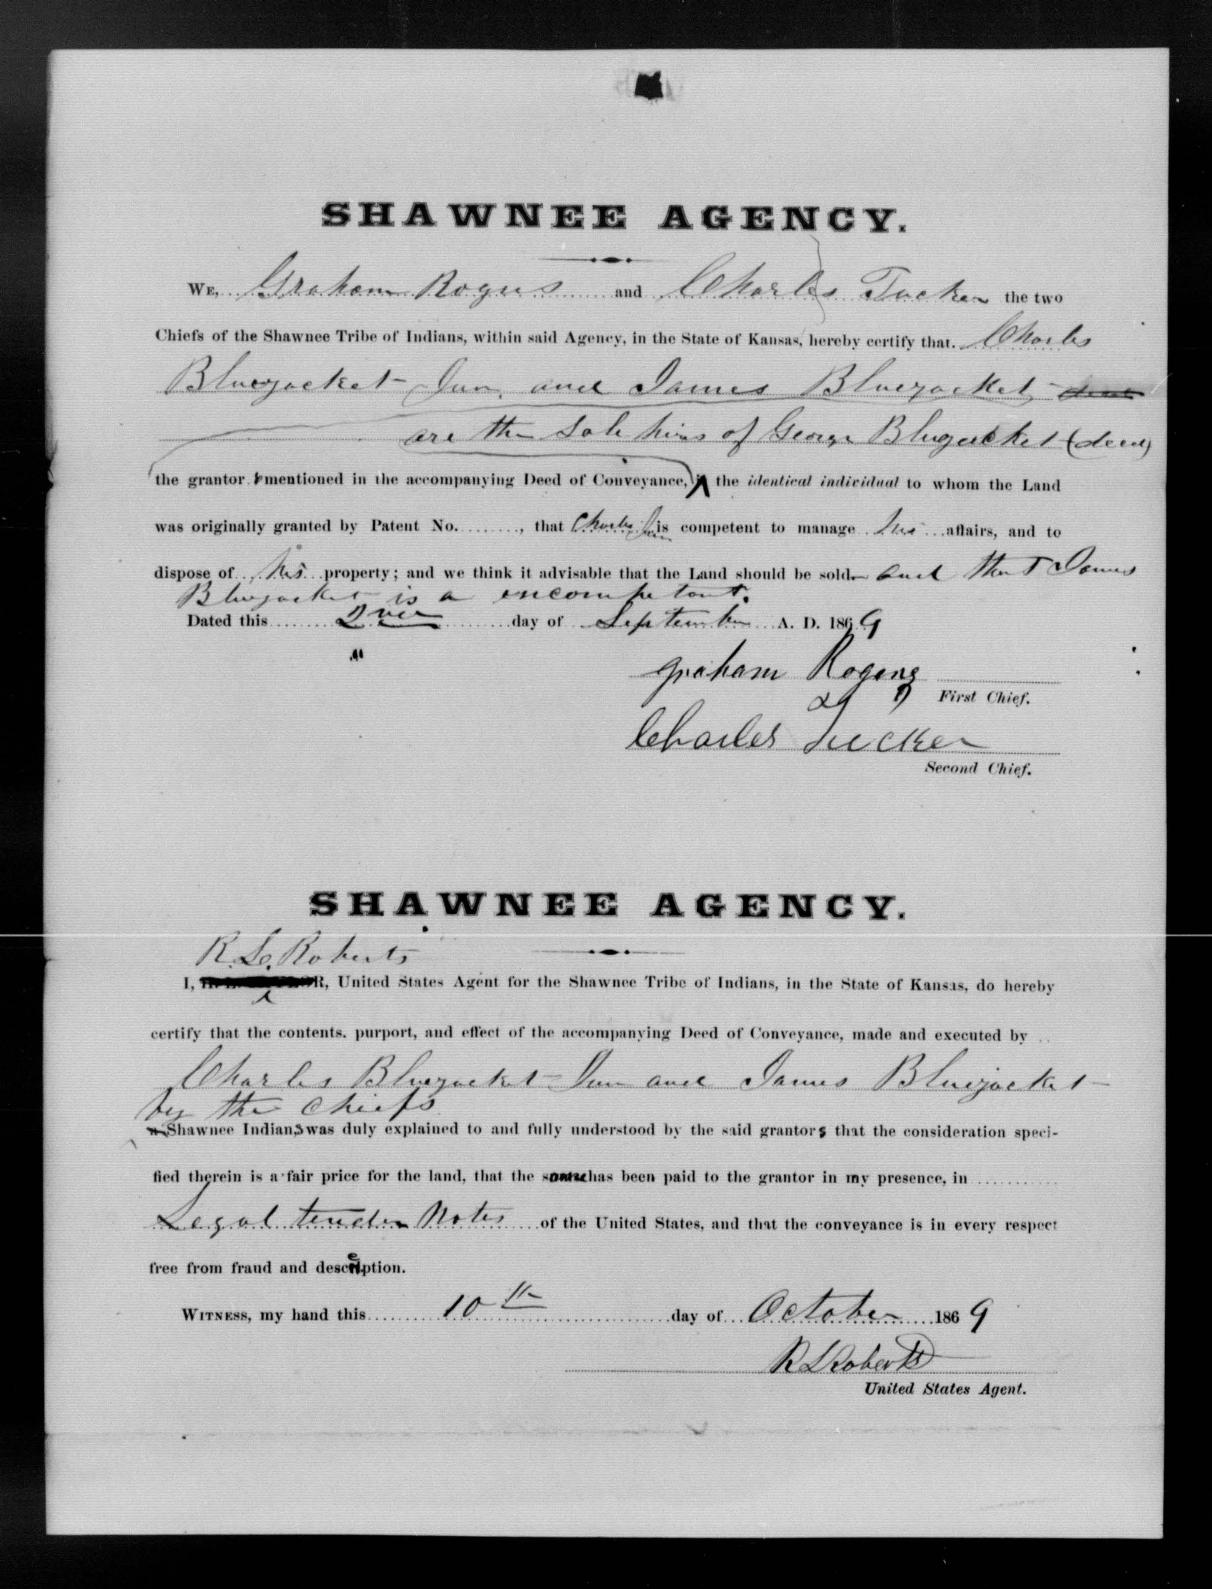 SHAWNEE AGENCY.
WE, Graham Rogers and Charles Tucker the two
Chiefs of the Shawnee Tribe of Indians, within said Agency, in the State of Kansas, hereby certify that Charles
Bluejacket Jun. and James Bluejacket
are the sole heirs of George Bluejacket (decd)
the grantor mentioned in the accompanying Deed of Conveyance, the identical individual to whom the Land
was originally granted by Patent No. ........, that Charles Jun is competent to manage his affairs, and to
dispose of his property; and we think it advisable that the Land should be sold and that James
Bluejacket is a incompetant.
Dated this 2nd day of September A. D. 1869
graham Rogers
First Chief.
Charles Tucker
Second Chief.
SHAWNEE AGENCY.
R. L. Roberts
I, R, United States Agent for the Shawnee Tribe of Indians, in the State of Kansas, do hereby
certify that the contents. purport, and effect of the accompanying Deed of Conveyance, made and executed by
Charles Bluejacket Jun and James Bluejacket
by the chiefs
a Shawnee Indians was duly explained to and fully understood by the said grantors that the consideration speci-
fied therein is a fair price for the land, that the same has been paid to the grantor in my presence, in
Legal tender Notes of the United States, and that the conveyance is in every respect
free from fraud and deception.
WITNESS, my hand this 10th day of October 1869
R L Roberts
United States Agent.